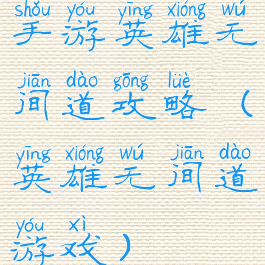 shǒu yóu yīng xióng wú
手游英雄无
jiān dào gōng lüè
间道攻略（
yīng xióng wú jiān dào
英雄无间道
yóu xì
游戏）